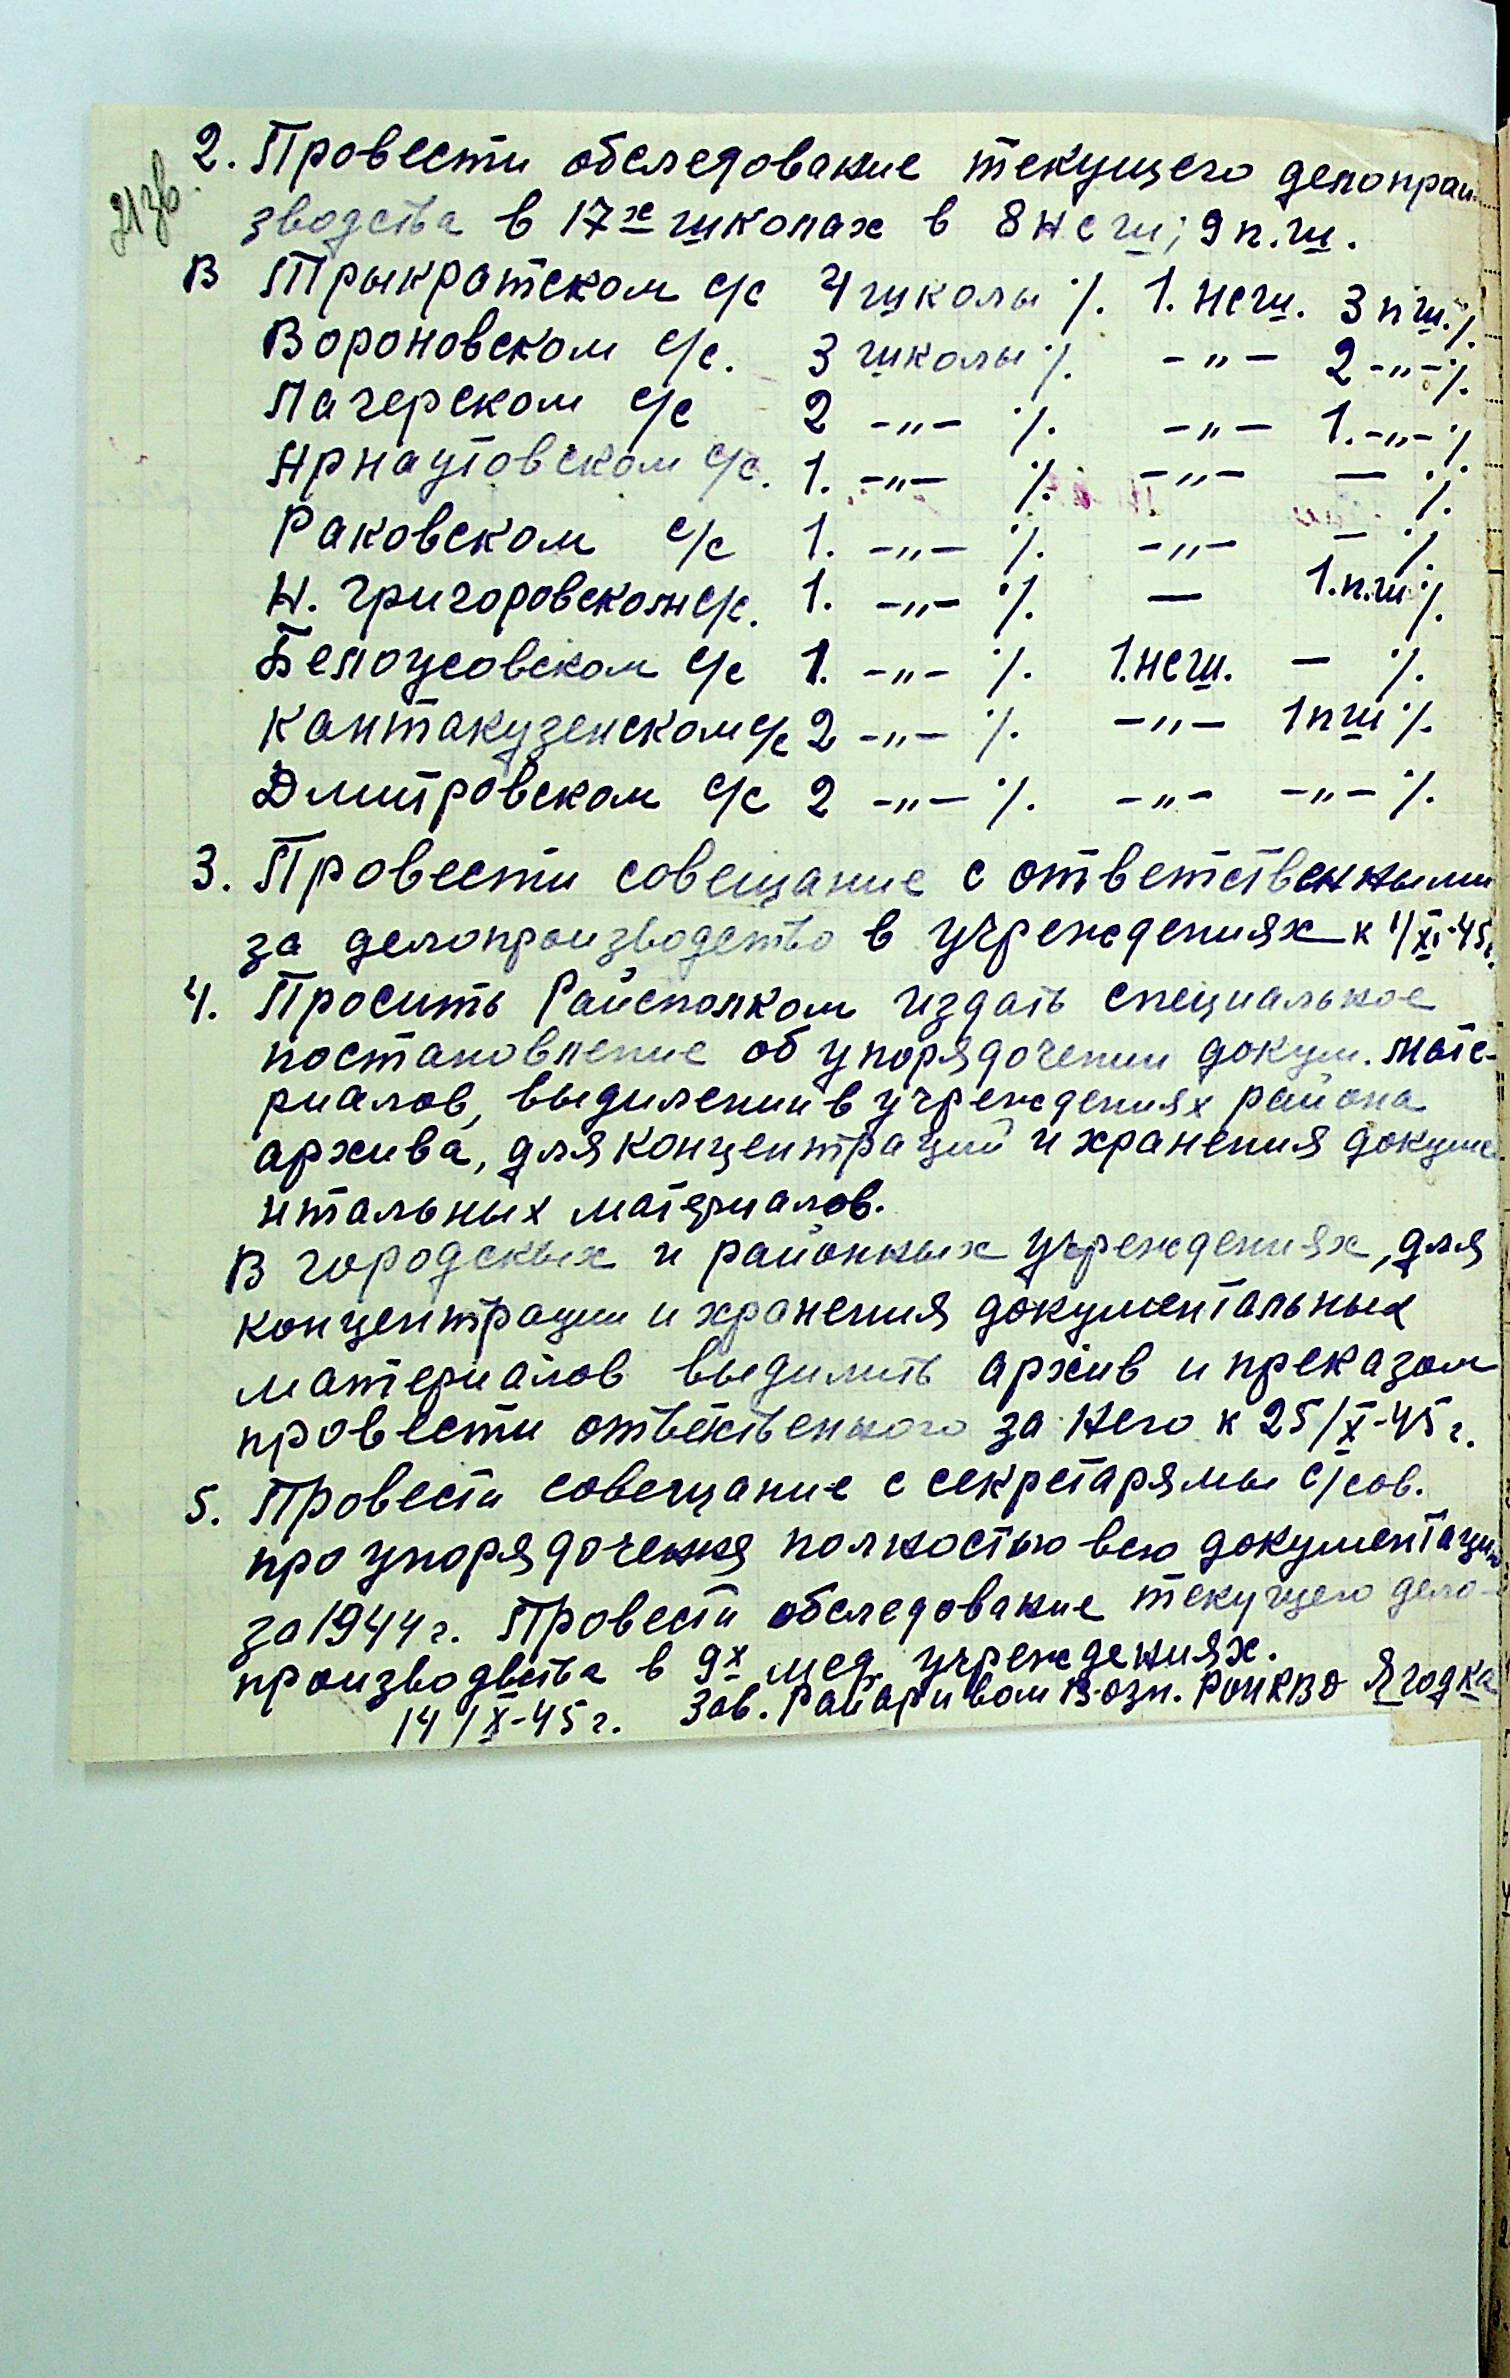 21 зв.
2. Провести обследование текущего делопрои
зводства в 17х школах в 8 нсш; 9 п.ш.
В Трыкратском с/с 4 школы ٪ 1. нсш. 3 пш. ٪
Вороновском с/с. 3 школы ٪ -„- 2 -„- ٪
Лагерском с/с 2 -„- ٪ -„- 1. -„- ٪
Арнаутовском с/с. 1. -„- ٪ -„- — ٪
Раковском с/с 1. -„- ٪ -„- — ٪
Н. Григоровском с/с. 1. -„- ٪ — 1. п.ш ٪
Белоусовском с/с 1. -„- ٪ 1. нсш. — ٪
Кантакузенском с/с 2 -„- ٪ -„- 1 пш ٪
Дмитровском с/с 2 -„- ٪ -„- -„- ٪
3. Провести совещание с ответственными
за делопроизводство в учреждениях к 1/XI-45г.
4. Просить Райсполком издать специальное
постановление об упорядочении докум. мате-
риалов, выдилении в учреждениях района
архива, для концентраций и хранения докуме
нтальных материалов.
В городских и районных учреждениях, для
концентрации и хранения документальных
материалов выдилить архив и преказом
провести отвественного за него к 25/X-45 г.
5. Провести совещание с секретарямы с/сов.
про упорядочення полностью всю документацию
за 1944 г. Провести обследование текущего дело-
производства в 9х мед. учреждениях.
14/X-45 г. Зав. Райархивом Возн. РОНКВД Ягодка